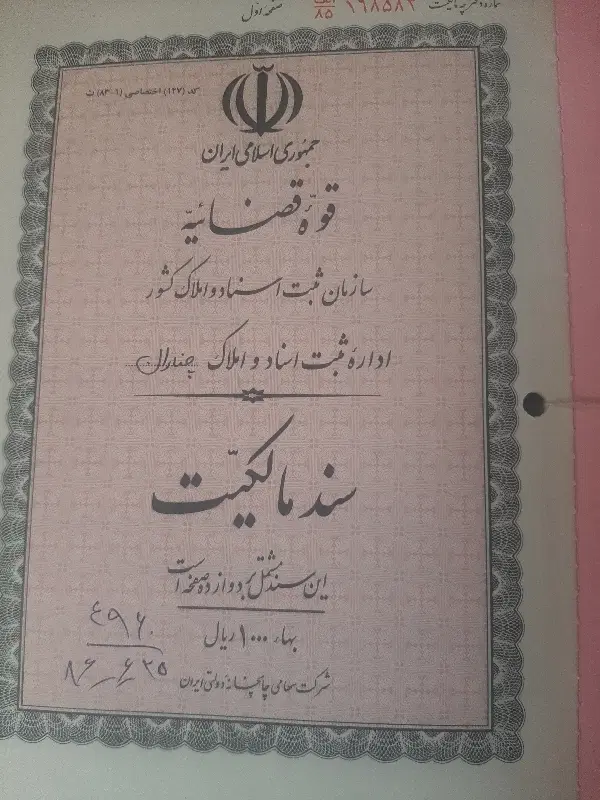 شماره دفترچه مالکیت ۱۹۸۵۸۲ الف ۸۵ صفحه اول
کد (۱۲۷) اختصاصی (۱-۸۴) ث
جمهوری اسلامی ایران
قوّهٔ قضائیّه
سازمان ثبت اسناد و املاک کشور
ادارهٔ ثبت اسناد و املاک چناران
سند مالکیّت
این سند مشتمل بر دوازده صفحه است
بهاء ۱۰۰۰ ریال
شرکت سهامی چاپخانه دولتی ایران
۴۹۶۰
۸۶/۶/۲۵